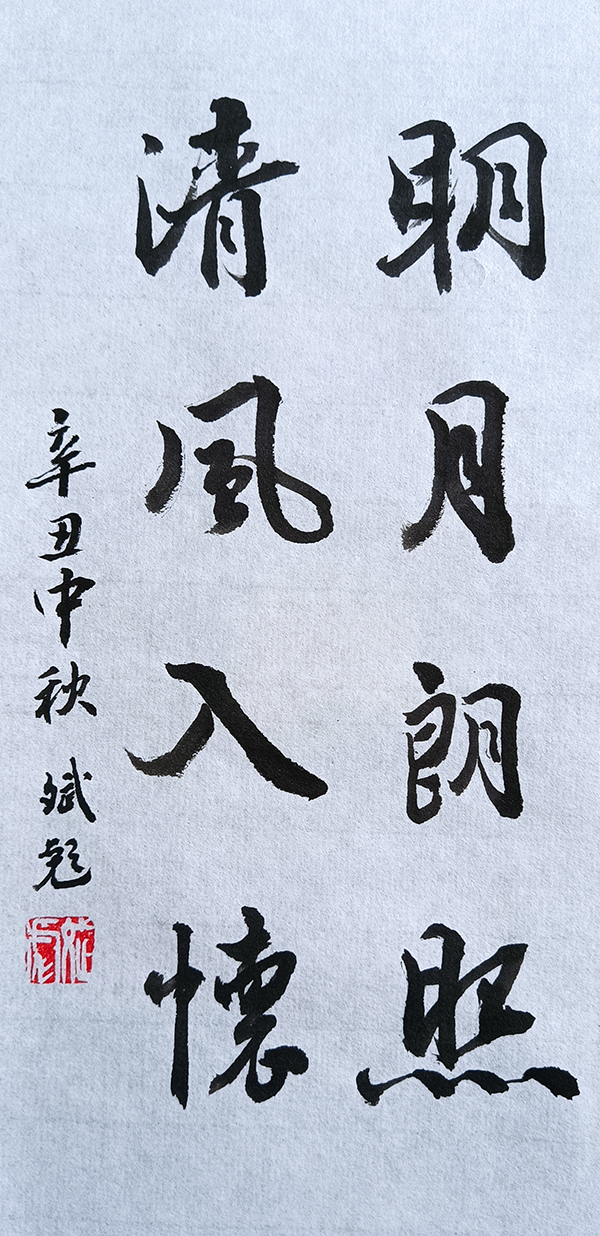 明月朗照
清風入懷
辛丑中秋 斌